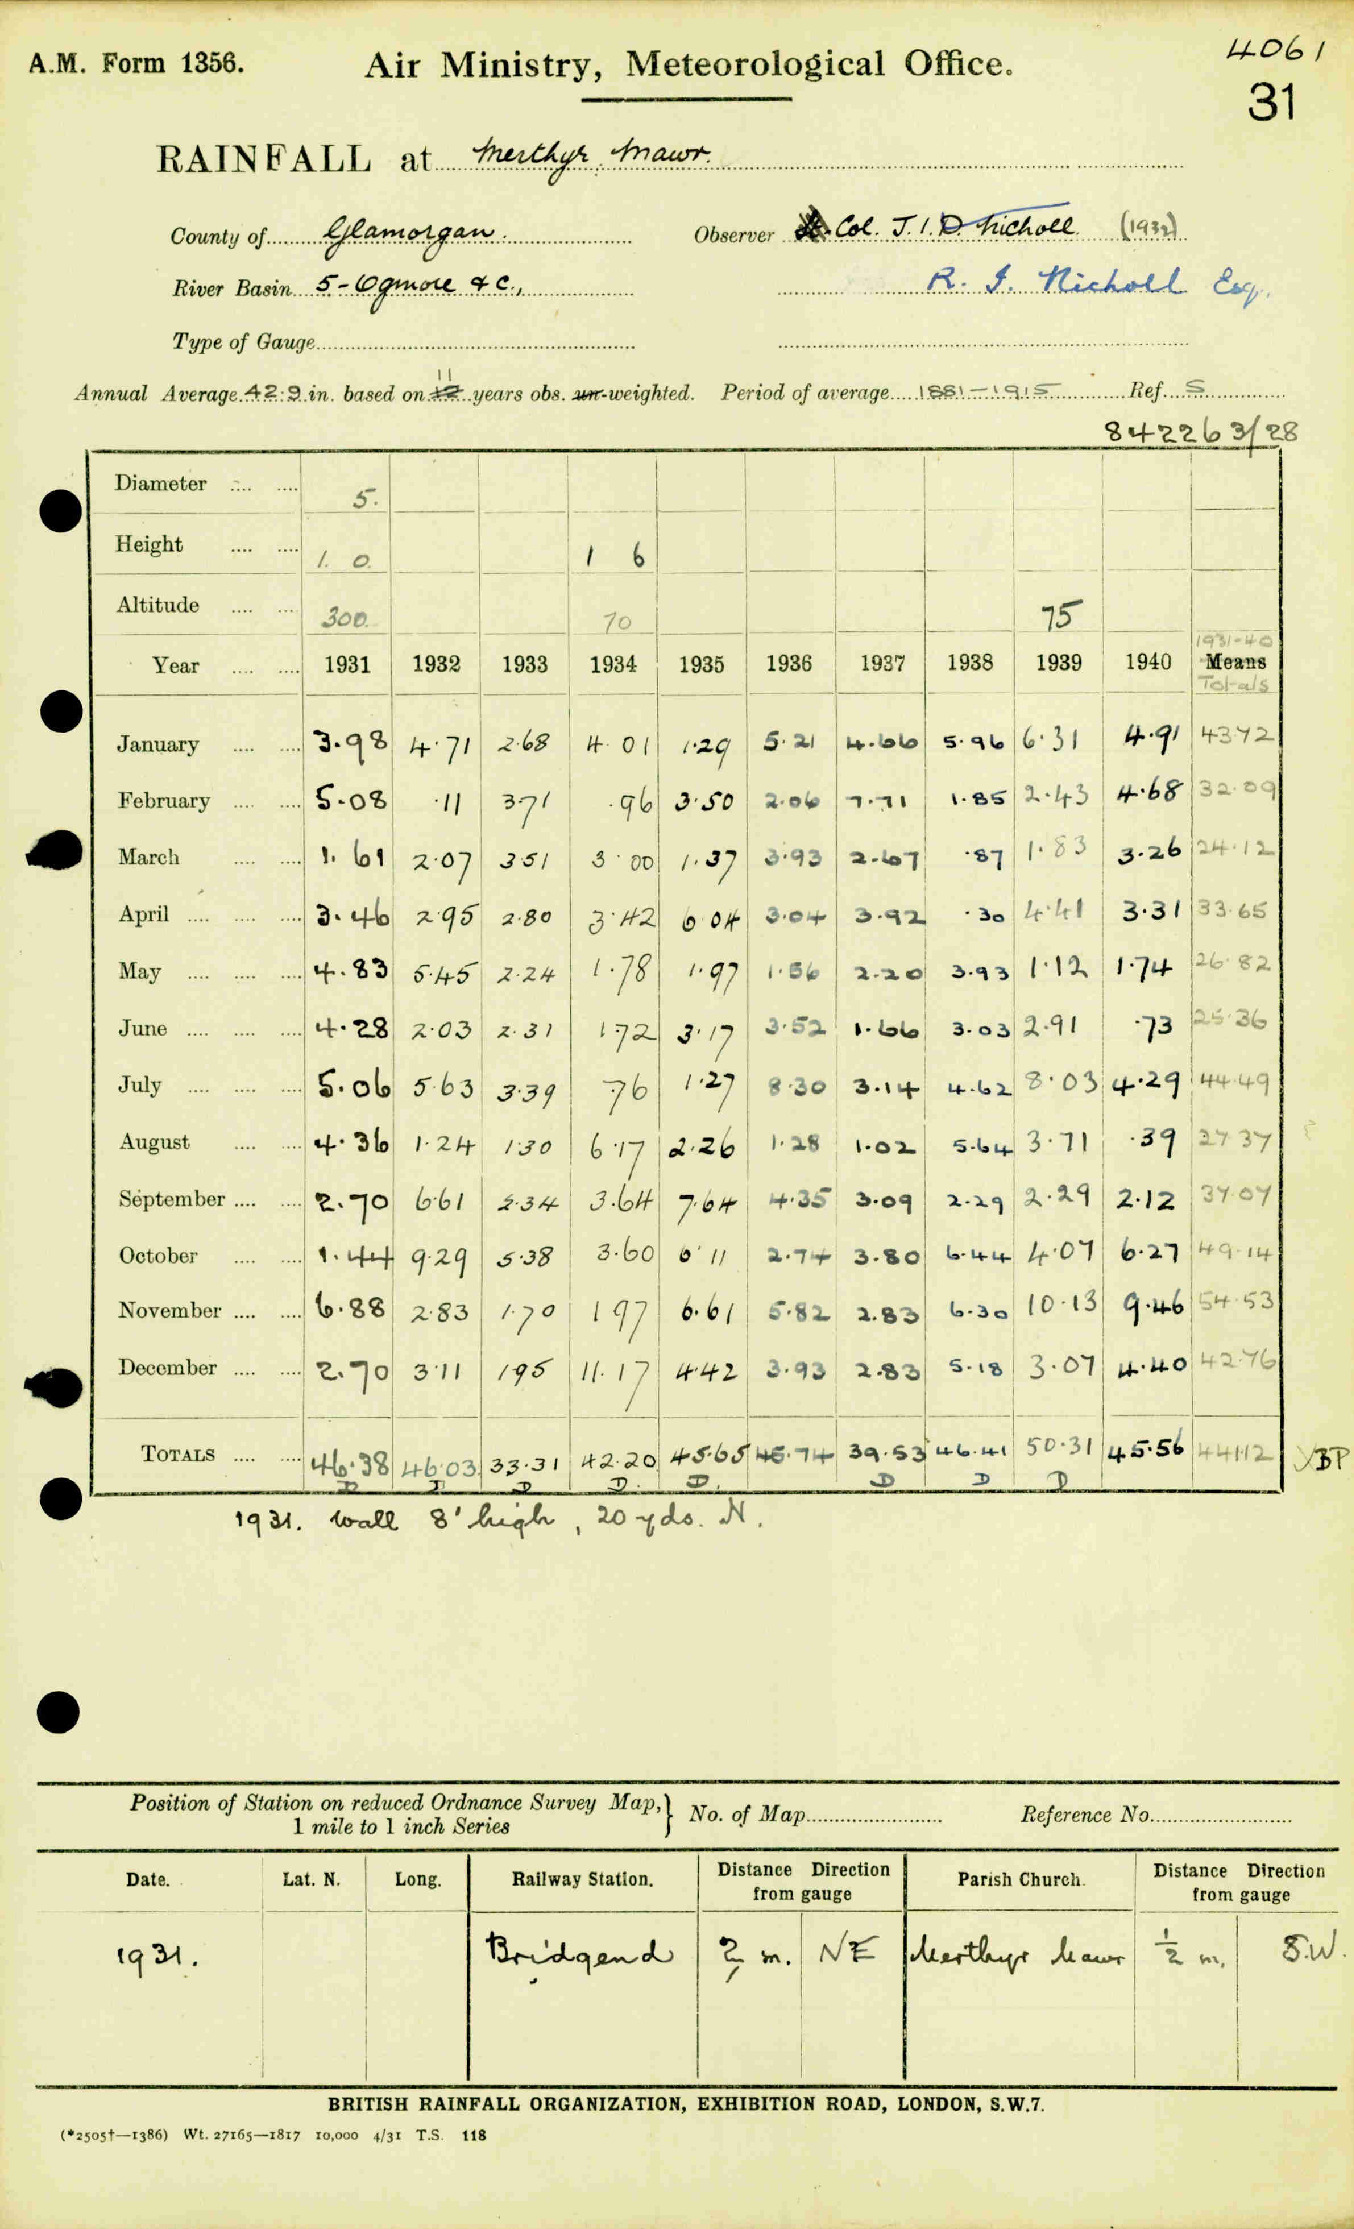 A.M. Form 1356. Air Ministry, Meteorological Office. 4061
31
RAINFALL at Merthyr Mawr.
County of Glamorgan. Observer Col. J.I.D. Nicholl (1932)
River Basin 5-Ogmore &c., R. I. Nicholl Esq.
Type of Gauge
11
Annual Average 42.9 in. based on 12 years obs. un-weighted. Period of average 1881-1915 Ref. S
842263/28
Diameter .... .... 5.
Height .... .... 1. 0. 1 6
Altitude .... .... 300. 70 75
1931-40
Year .... .... 1931 1932 1933 1934 1935 1936 1937 1938 1939 1940 Means
Totals
January .... .... 3.98 4.71 2.68 4.01 1.29 5.21 4.66 5.96 6.31 4.91 43.72
February .... .... 5.08 .11 3.71 .96 3.50 2.06 7.71 1.85 2.43 4.68 32.09
March .... .... 1.61 2.07 3.51 3.00 1.37 3.93 2.67 .87 1.83 3.26 24.12
April .... .... .... 3.46 2.95 2.80 3.42 6.04 3.04 3.92 .30 4.41 3.31 33.65
May .... .... .... 4.83 5.45 2.24 1.78 1.97 1.56 2.20 3.93 1.12 1.74 26.82
June .... .... .... 4.28 2.03 2.31 1.72 3.17 3.52 1.66 3.03 2.91 .73 25.36
July .... .... .... 5.06 5.63 3.39 .76 1.27 8.30 3.14 4.62 8.03 4.29 44.49
August .... .... 4.36 1.24 1.30 6.17 2.26 1.28 1.02 5.64 3.71 .39 27.37
September .... .... 2.70 6.61 2.34 3.64 7.64 4.35 3.09 2.29 2.29 2.12 37.07
October .... .... 1.44 9.29 5.38 3.60 6.11 2.74 3.80 6.44 4.07 6.27 49.14
November .... .... 6.88 2.83 1.70 1.97 6.61 5.82 2.83 6.30 10.13 9.46 54.53
December .... .... 2.70 3.11 1.95 11.17 4.42 3.93 2.83 5.18 3.07 4.40 42.76
TOTALS .... .... 46.38 46.03 33.31 42.20 45.65 45.74 39.53 46.41 50.31 45.56 441.12 BP
D D D D. D. D D D
1931. Wall 8' high, 20 yds. N.
Position of Station on reduced Ordnance Survey Map,} No. of Map Reference No.
1 mile to 1 inch Series
Date. Lat. N. Long. Railway Station. Distance Direction from gauge Parish Church. Distance Direction from gauge
1931. Bridgend 2 m. NE Merthyr Mawr ½ m. S.W.
BRITISH RAINFALL ORGANIZATION, EXHIBITION ROAD, LONDON, S.W.7.
(*2505†—1386) Wt. 27165—1817 10,000 4/31 T.S. 118